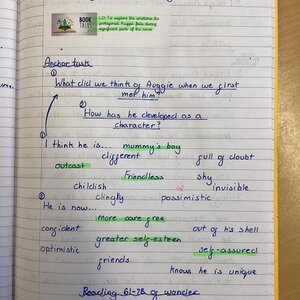 BOOK TALK
LO: To explore the emotions the
protagonist Auggie feels during
significant parts of the novel.
Anchor task
①
What did we think of Auggie when we first
met him?
②
How has he developed as a
character?
① I think he is... mummy's boy
different full of doubt
outcast
friendless shy
childish invisible
clingly possimistic
②
He is now...
more care free
confident out of his shell
greater self-esteem
optimistic self-assured
friends
knows he is unique
Reading 61-78 of wonder